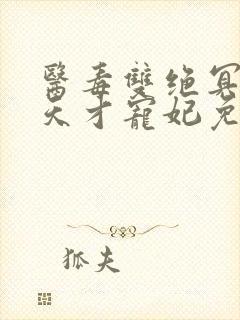 醫毒雙绝冥
天才寵妃免
狐夫